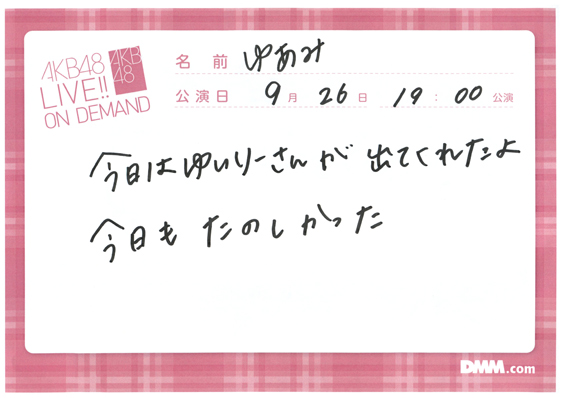 AKB48
LIVE!!
ON DEMAND
AKB
48
名前 ゆあみ
公演日 9月 26日 19:00 公演
今日はゆいりーさんが出てくれたよ
今日も たのしかった
DMM.com